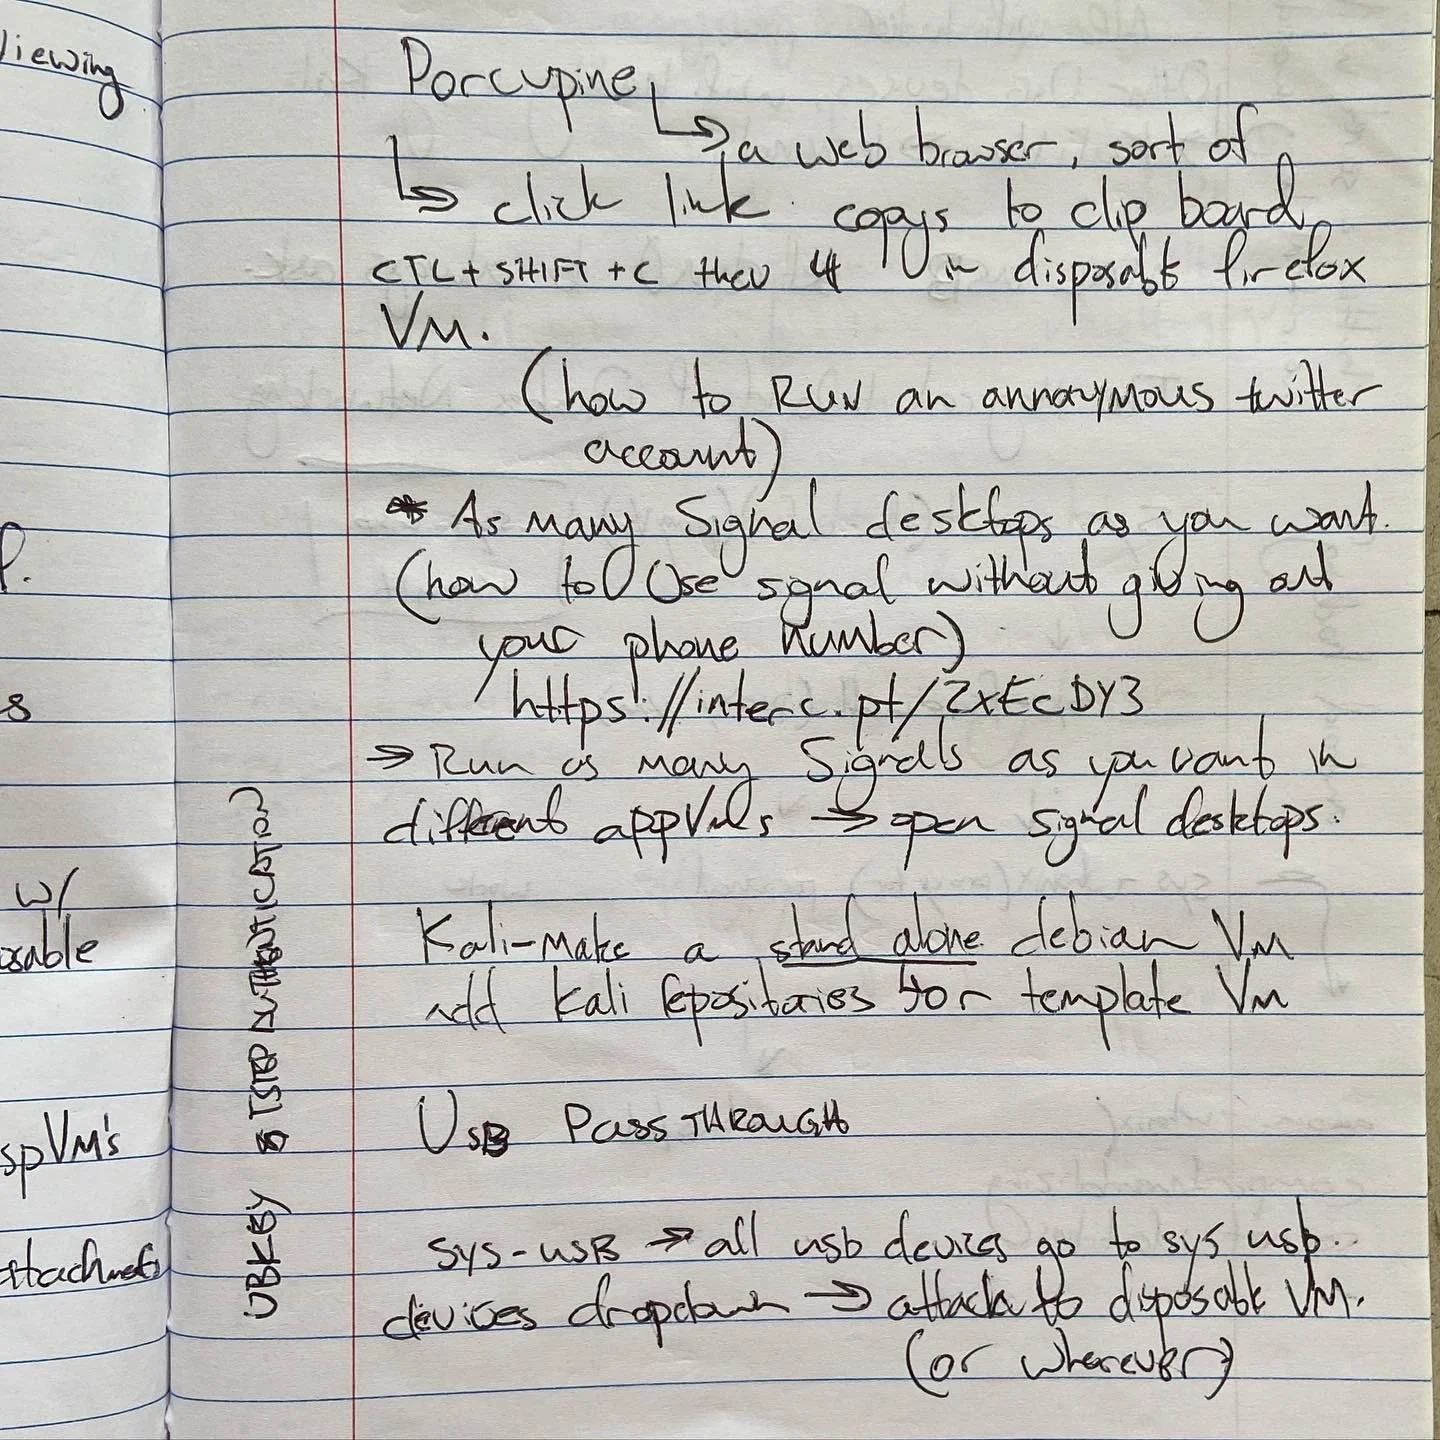 viewing
P.
s
w/
osable
spVM's
attachments
UBKEY 5 TSTEP AUTHENTICATION)
Porcupine
↳ a web browser, sort of
↳ click link copys to clip board
CTL + SHIFT + C then in disposable firefox
VM.
(how to RUN an annonymous twitter
account)
* As many Signal desktops as you want.
(how to Use signal without giving out
your phone number)
https://interc.pt/2xEcDY3
→ Run as many Signals as you want in
different appVMs → open signal desktops.
Kali-Make a stand alone debian VM
add Kali repositories for template VM
USB PASSTHROUGH
sys-usB → all usb devices go to sys usb..
devices dropdown → attach to disposable VM.
(or wherever)